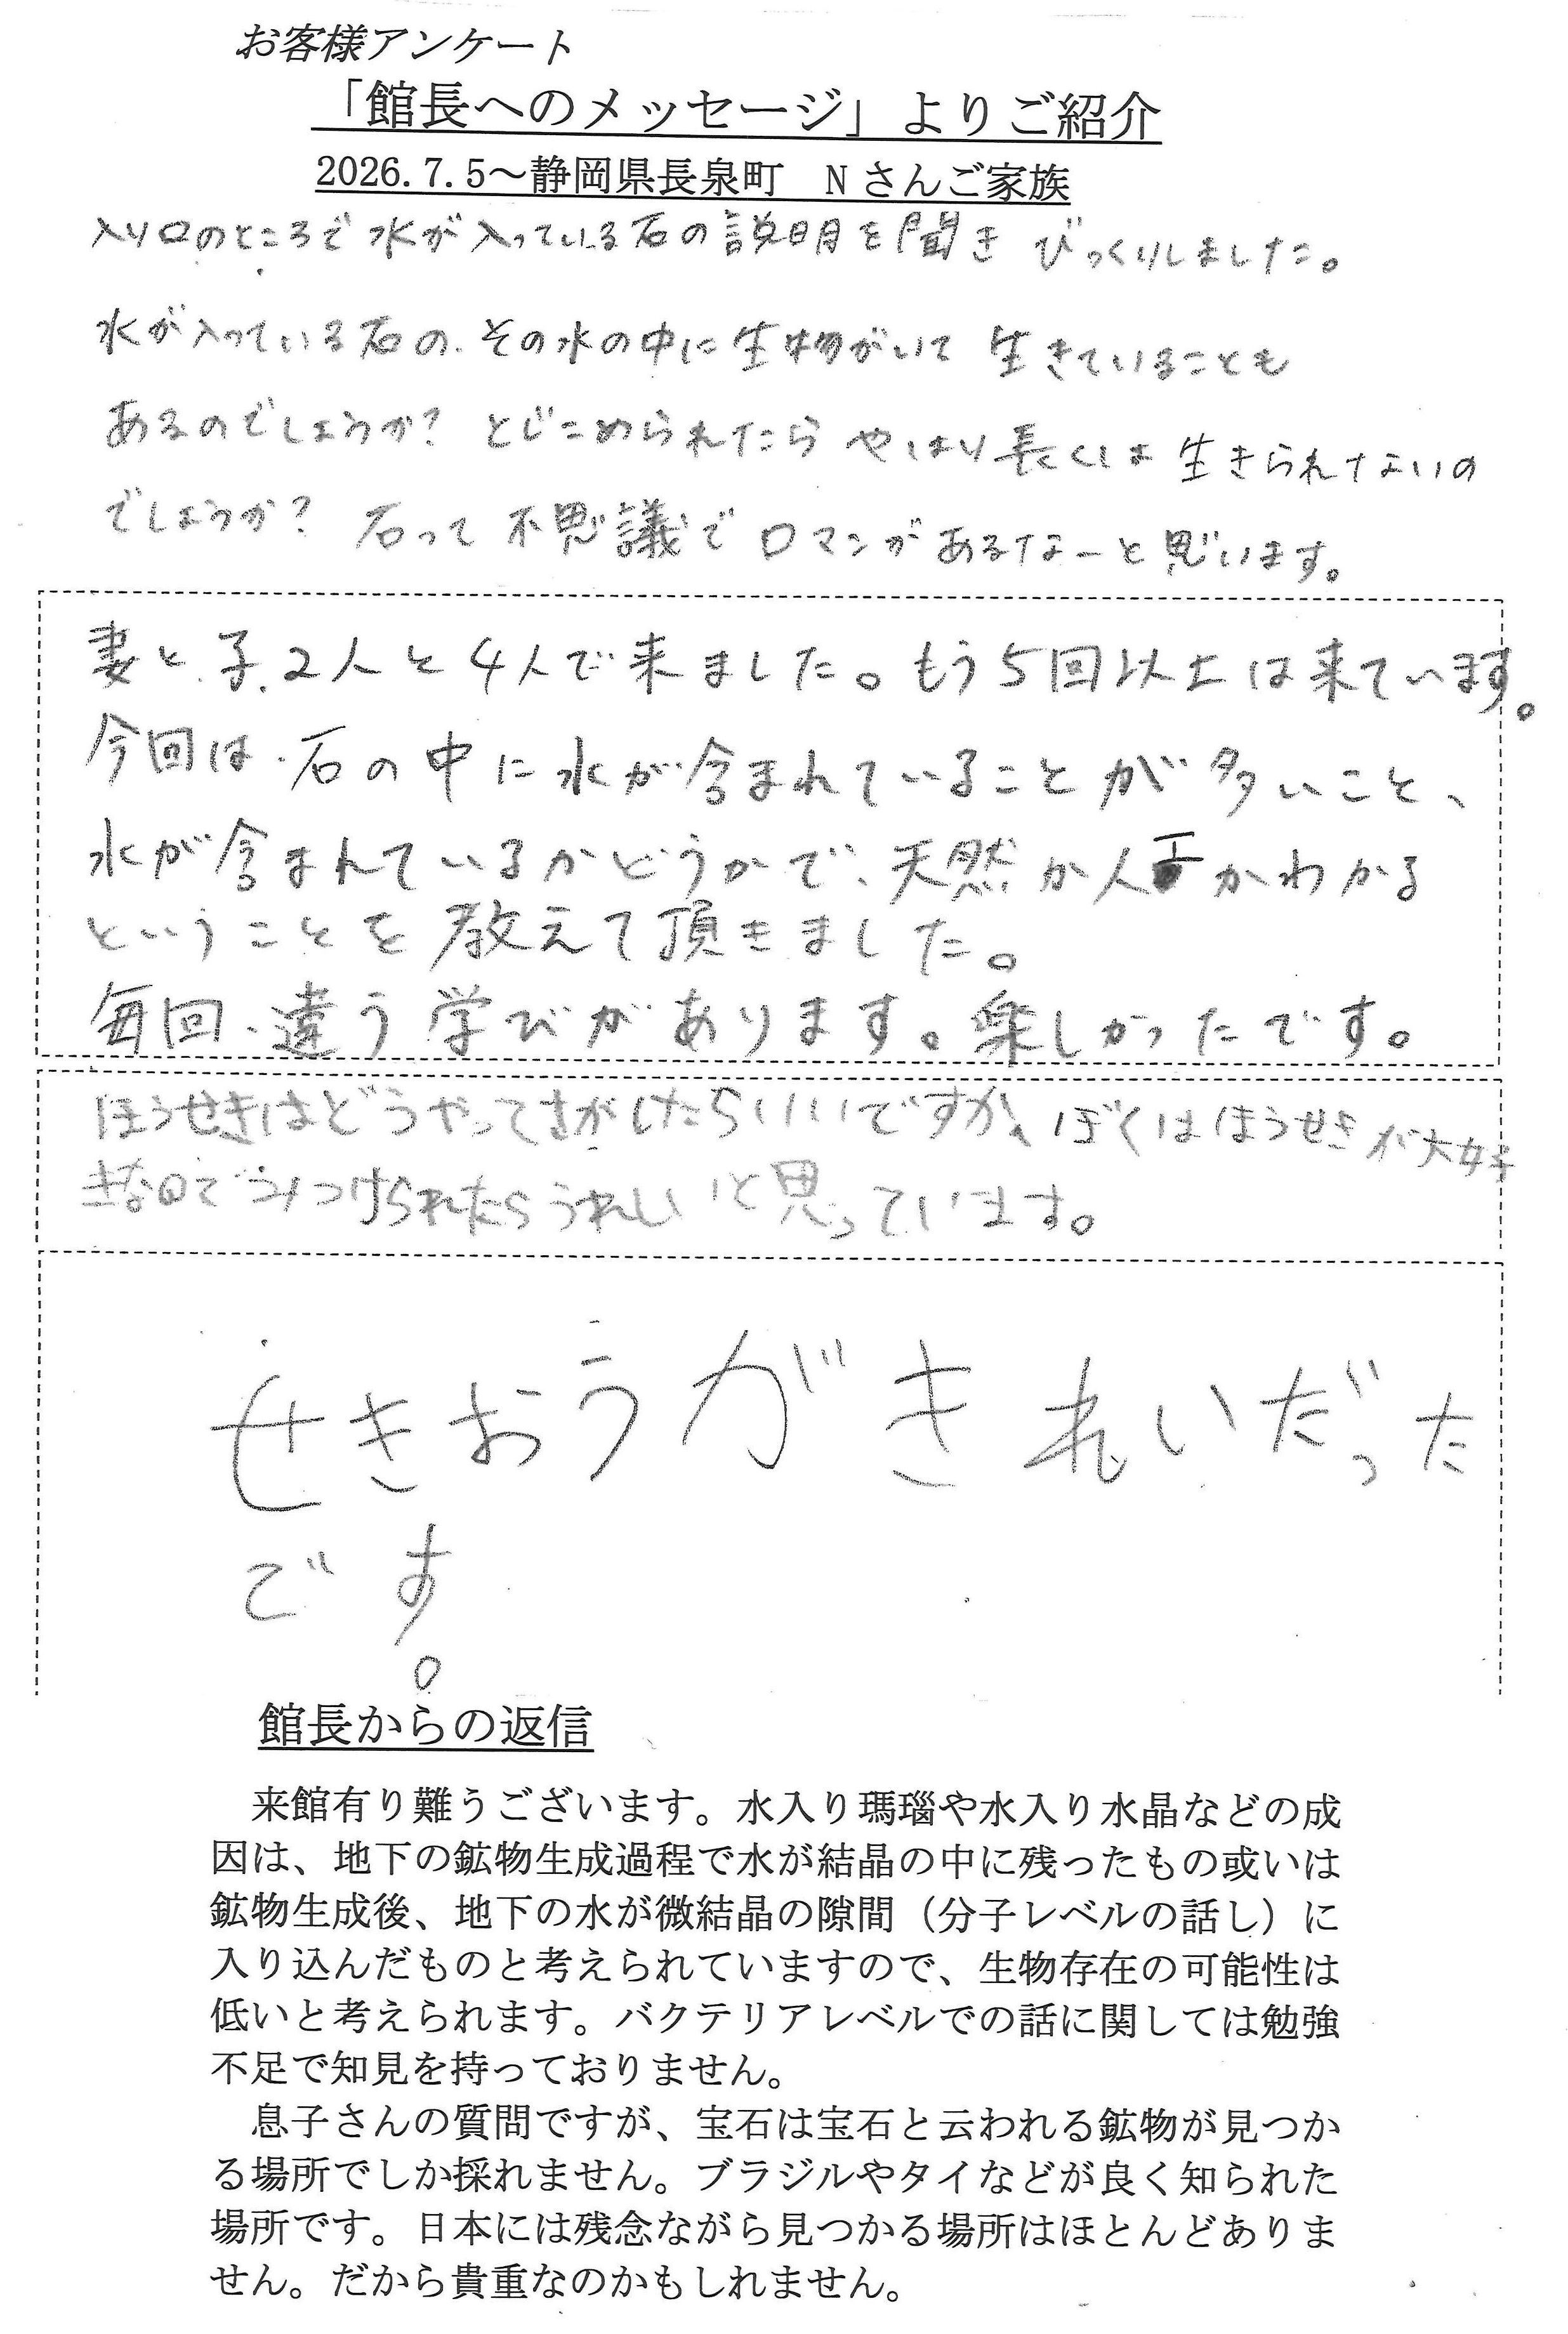 お客様アンケート
「館長へのメッセージ」よりご紹介
2026.7.5～静岡県長泉町　Nさんご家族
入り口のところで水が入っている石の説明を聞き びっくりしました。
水が入っている石の、その水の中に生物がいて 生きていることも
あるのでしょうか? とじこめられたら やはり長くは 生きられないの
でしょうか? 石って 不思議で ロマンがあるなーと思います。
妻と、子、2人と4人で来ました。もう5回以上は来ています。
今回は、石の中に水が含まれていることが多いこと、
水が含まれているかどうかで、天然か人工かわかる
ということを教えて頂きました。
毎回、違う学びがあります。楽しかったです。
ほうせきはどうやってさがしたらいいですか、ぼくはほうせきが大好
きなのでみつけられたらうれしいと思っています。
せきおうがきれいだった
です。
館長からの返信
　来館有り難うございます。水入り瑪瑙や水入り水晶などの成
因は、地下の鉱物生成過程で水が結晶の中に残ったもの或いは
鉱物生成後、地下の水が微結晶の隙間（分子レベルの話し）に
入り込んだものと考えられていますので、生物存在の可能性は
低いと考えられます。バクテリアレベルでの話に関しては勉強
不足で知見を持っておりません。
　息子さんの質問ですが、宝石は宝石と云われる鉱物が見つか
る場所でしか採れません。ブラジルやタイなどが良く知られた
場所です。日本には残念ながら見つかる場所はほとんどありま
せん。だから貴重なのかもしれません。